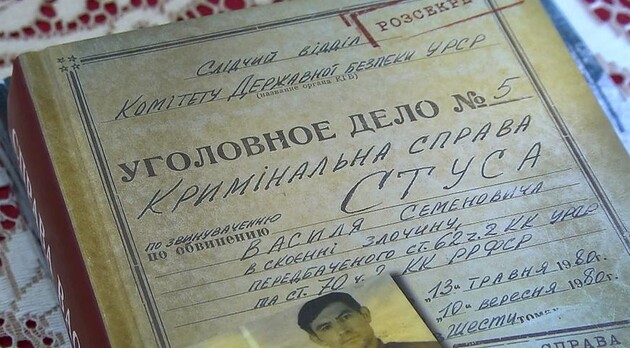 РОЗСЕКРЕ
Слідчий відділ
Комітету Державної безпеки УРСР
(название органа КГБ)
УГОЛОВНОЕ ДЕЛО № 5
Кримінальна справа
СТУСА
по звинуваченню
по обвинению
Василя Семеновича
в скоєнні злочину,
передбаченого ст. 62 ч. 2 КК УРСР
та ст. 70 ч. 2 КК РРФСР
"13" травня 1980 г.
"10" вересня 1980 г.
"шести томах
СПРАВА
СПРАВА ВАС